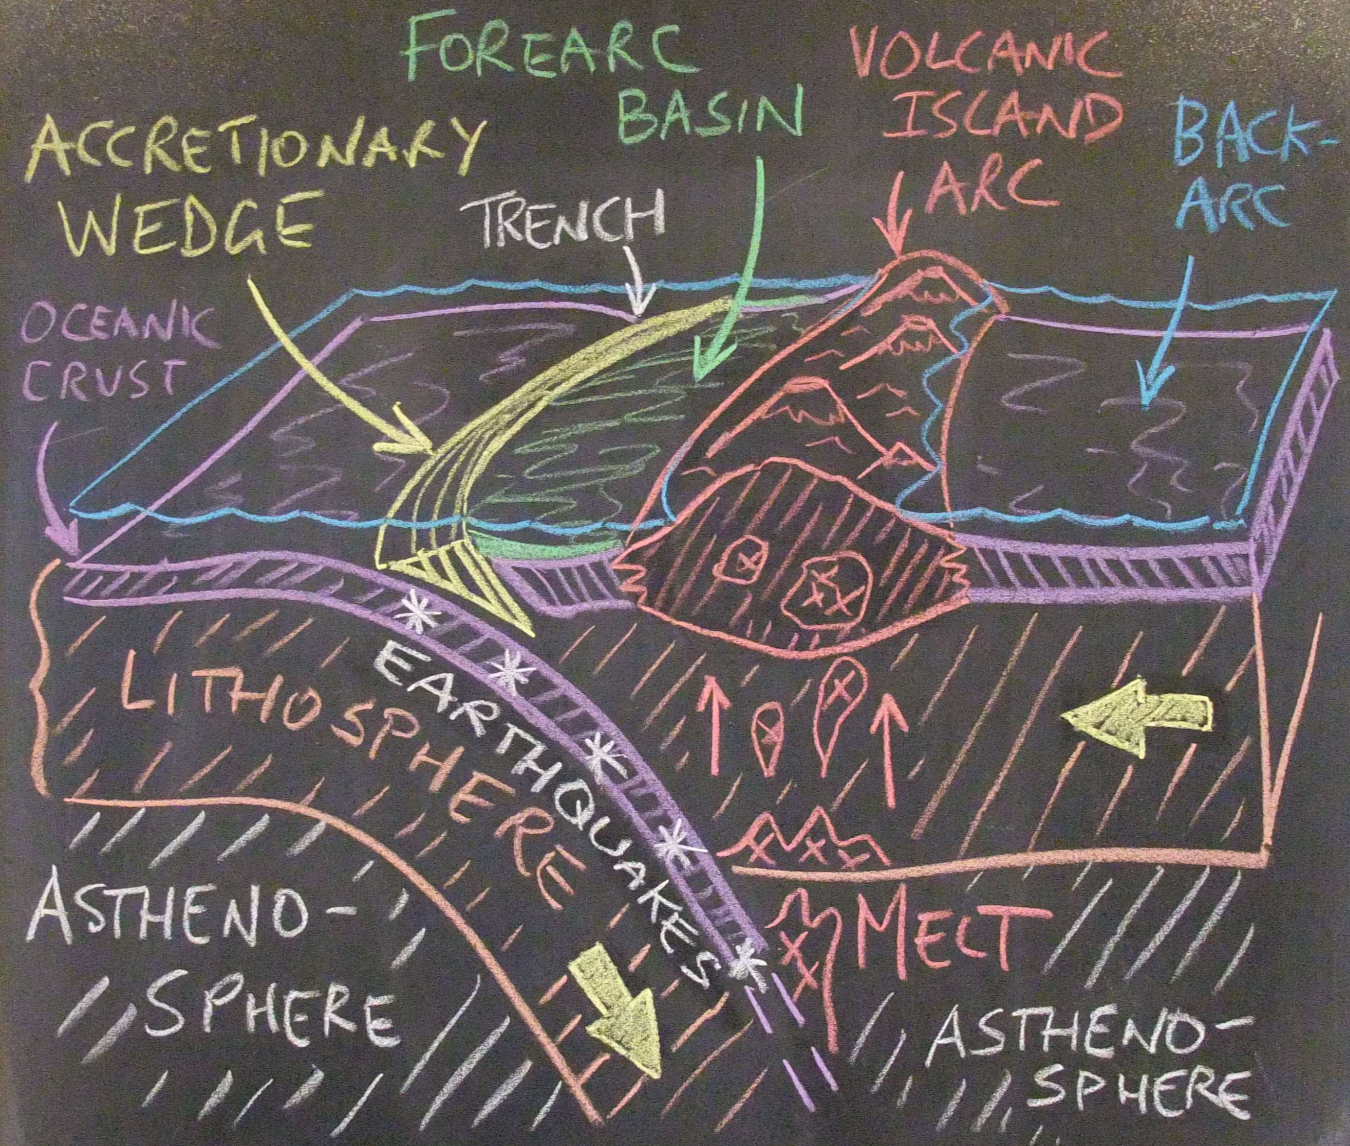 FOREARC
BASIN
VOLCANIC
ISLAND
ARC
BACK-
ARC
ACCRETIONARY
WEDGE
TRENCH
OCEANIC
CRUST
LITHOSPHERE
EARTHQUAKES
MELT
ASTHENO-
SPHERE
ASTHENO-
SPHERE